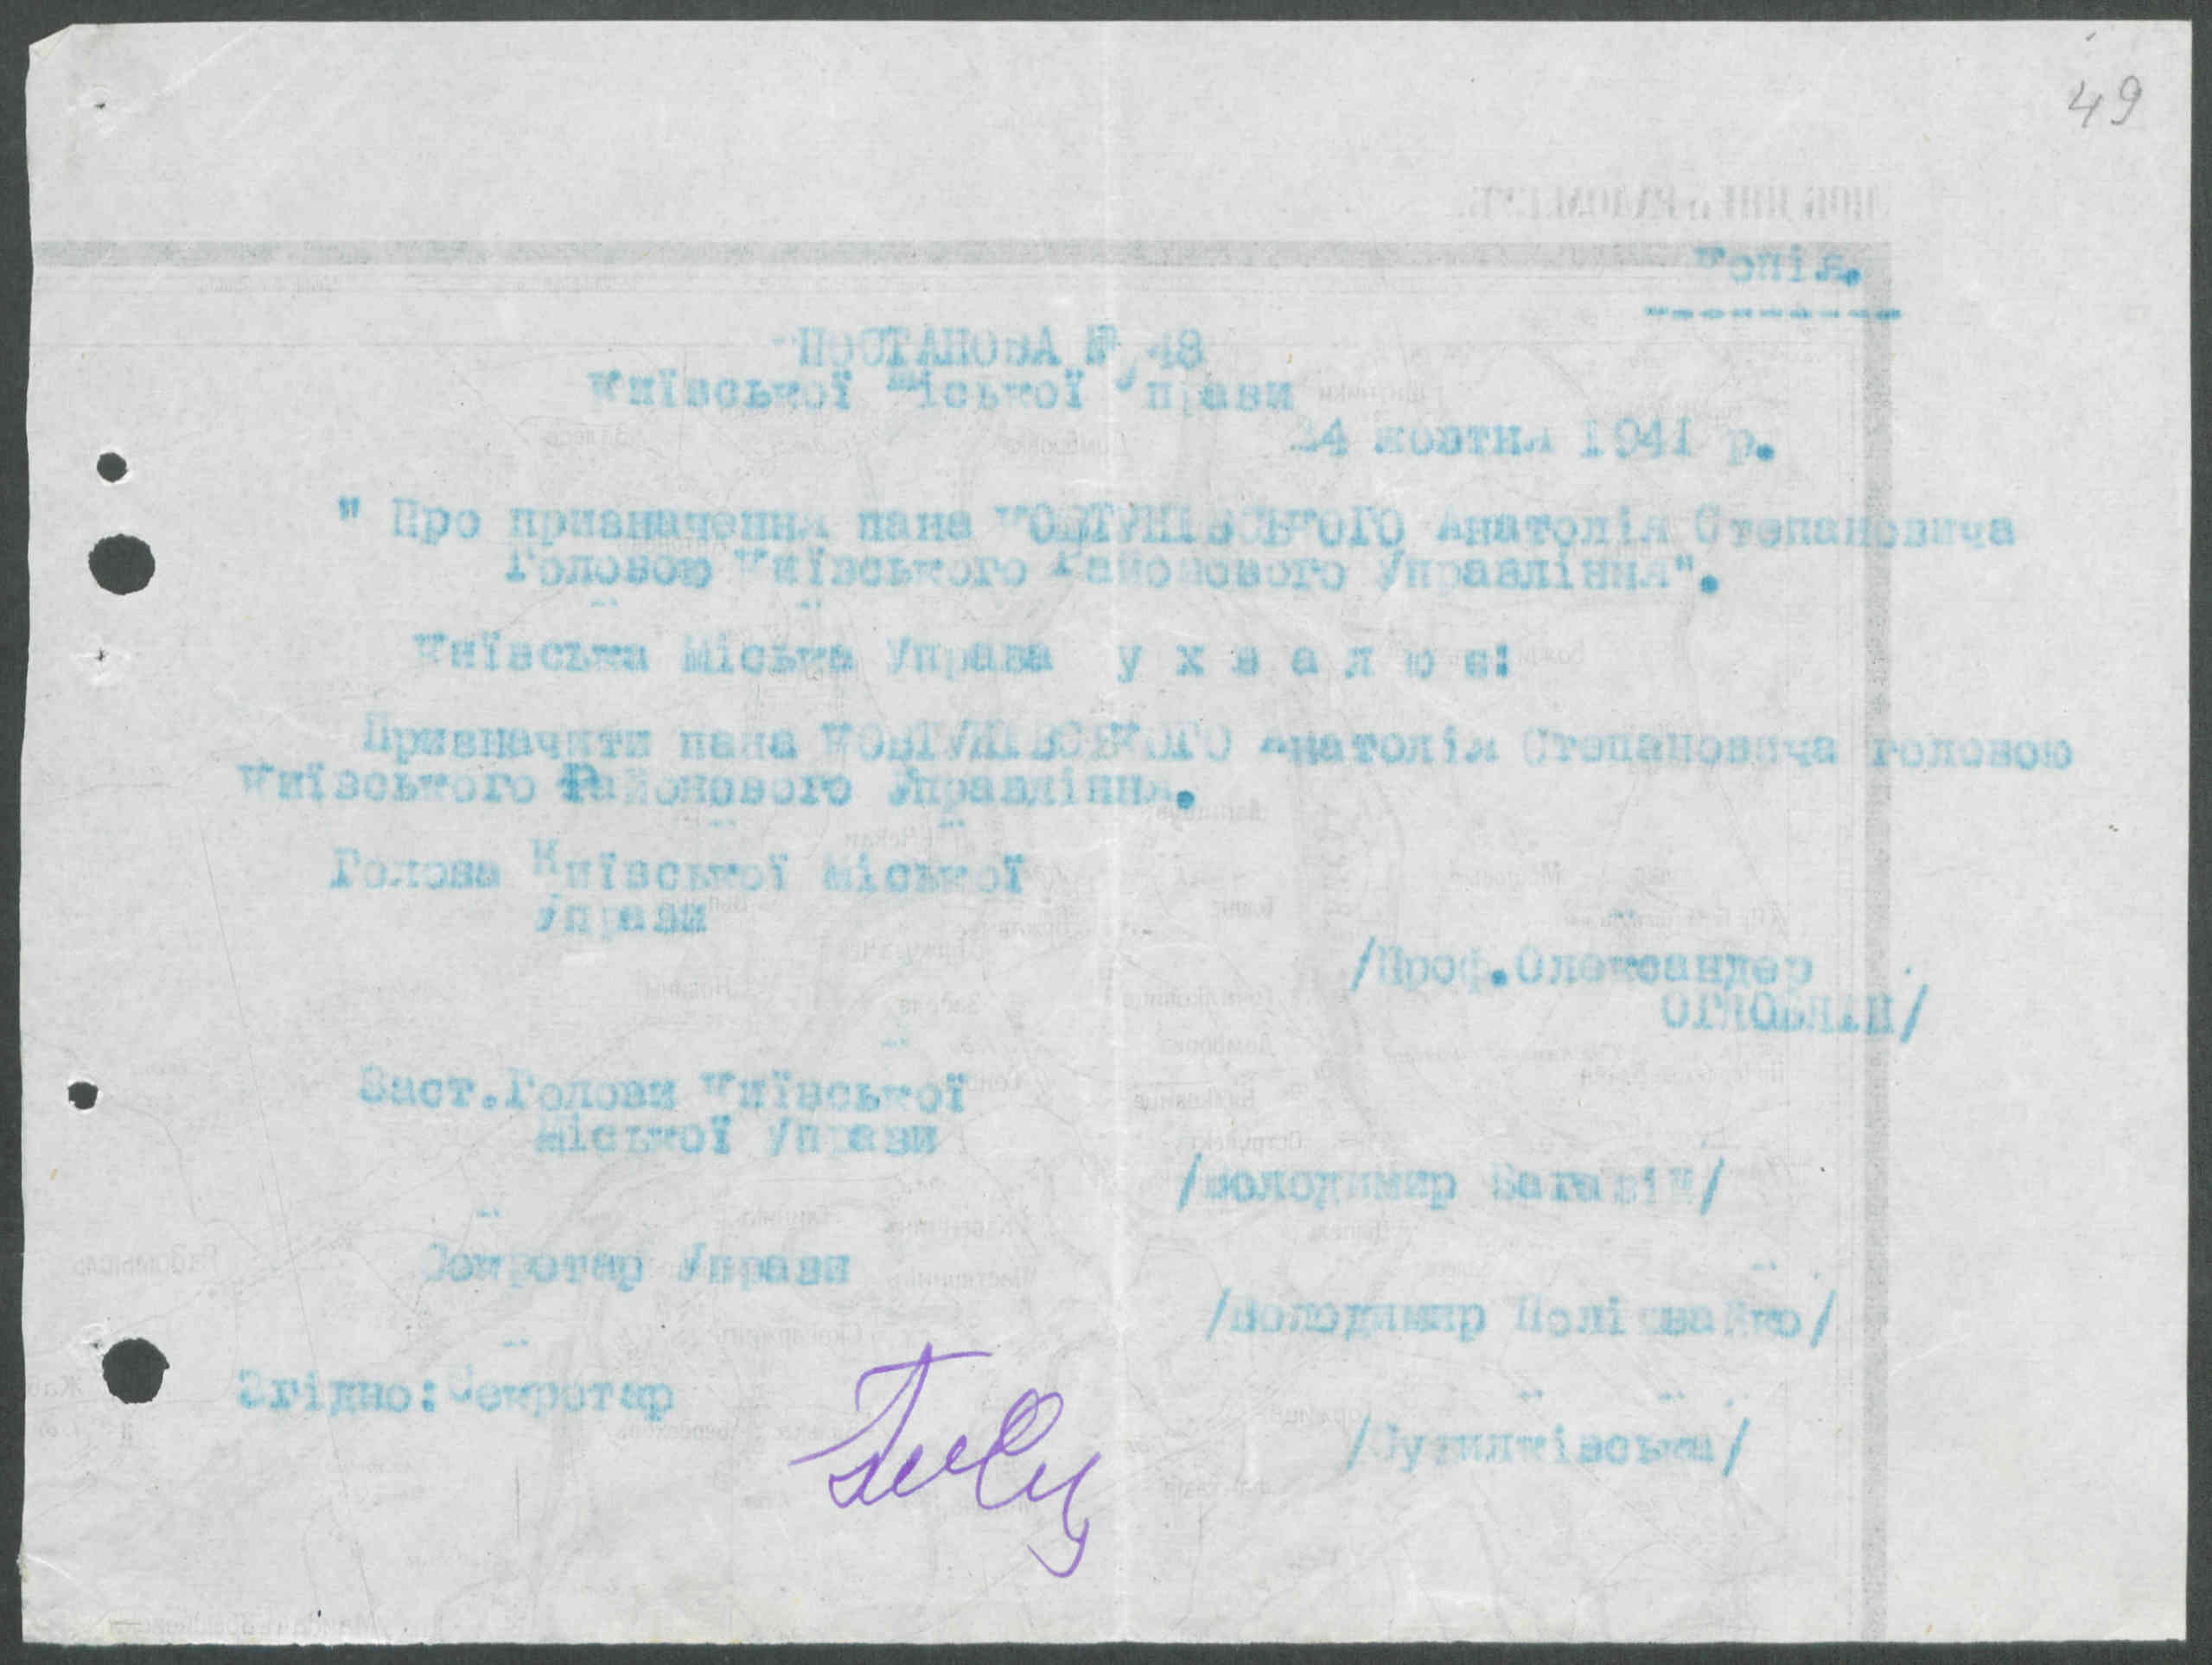 49
Копія.
ПОСТАНОВА № 48
Київської Міської Управи
24 жовтня 1941 р.
" Про призначення пана КОВТУНІВСЬКОГО Анатолія Степановича
Головою Київського Районового Управління".
Київська Міська Управа у х в а л ю є:
Призначити пана КОВТУНІВСЬКОГО Анатолія Степановича головою
Київського Районового Управління.
Голова Київської Міської
Управи
/Проф.Олександер
ОГЛОБЛІН/
Заст.Голови Київської
Міської Управи
/Володимир Багазій/
Секретар Управи
/Володимир
Згідно:Секретар